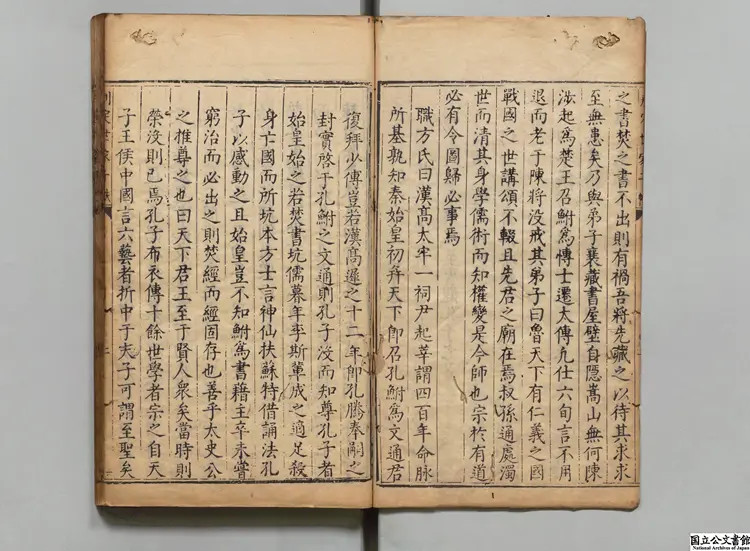 之書焚之書不出則有禍吾將先藏之以待其求求
至無患矣乃與弟子襄藏書屋壁自隱嵩山無何陳
涉起爲楚王召鮒爲博士遷太傅凡仕六旬言不用
退而老于陳將沒戒其弟子曰魯天下有仁義之國
戰國之世講頌不輟且先君之廟在焉叔孫通處濁
世而清其身學儒術而知權變是今師也宗於有道
必有令圖歸必事焉
職方氏曰漢高太牢一祠尹起莘謂四百年命脉
所基孰知秦始皇初并天下卽召孔鮒爲文通君
復拜少傅豈若漢高遲之十二年卽孔騰奉嗣之
封實啓于孔鮒之文通則孔子沒而知尊孔子者
始皇始之若焚書坑儒暮年李斯輩成之適足殺
身亡國而所坑本方士言神仙扶蘇特借誦法孔
子以感動之且始皇豈不知鮒爲書籍主卒未嘗
窮治而必出之則焚經而經固存也善乎太史公
之推尊之也曰天下君王至于賢人衆矣當時則
榮沒則已焉孔子布衣傳十餘世學者宗之自天
子王侯中國言六藝者折中于夫子可謂至聖矣
国立公文書館
National Archives of Japan